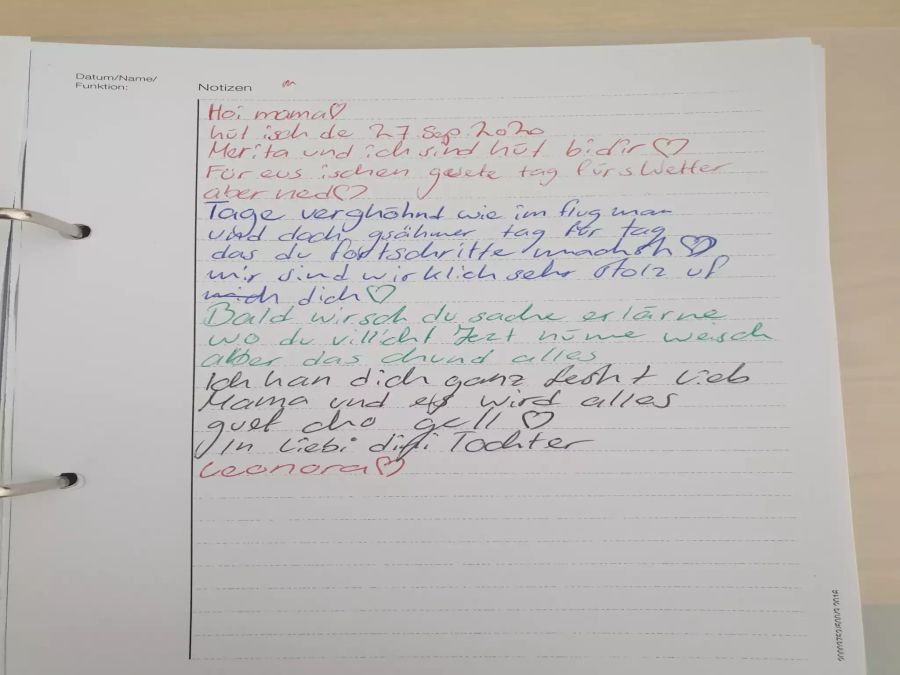 Datum/Name/
Funktion:
Notizen
Hoi mama♡
hüt isch de 27 Sep 2020
Merita und ich sind hüt bi dir♡
Für eus ischen guete tag fürs Wetter
aber ned♡
Tage verghöhnd wie im flug man
und doch gsähmer tag für tag
das du fortschritte machsch♡
mir sind wirklich sehr stolz uf
mich dich♡
Bald wirsch du sache erläre
wo du villicht Jezt nüme weisch
aber das chund alles
Ich han dich ganz fesht Lieb
Mama und es wird alles
guet cho gell♡
In Liebi dini Tochter
Leonora♡